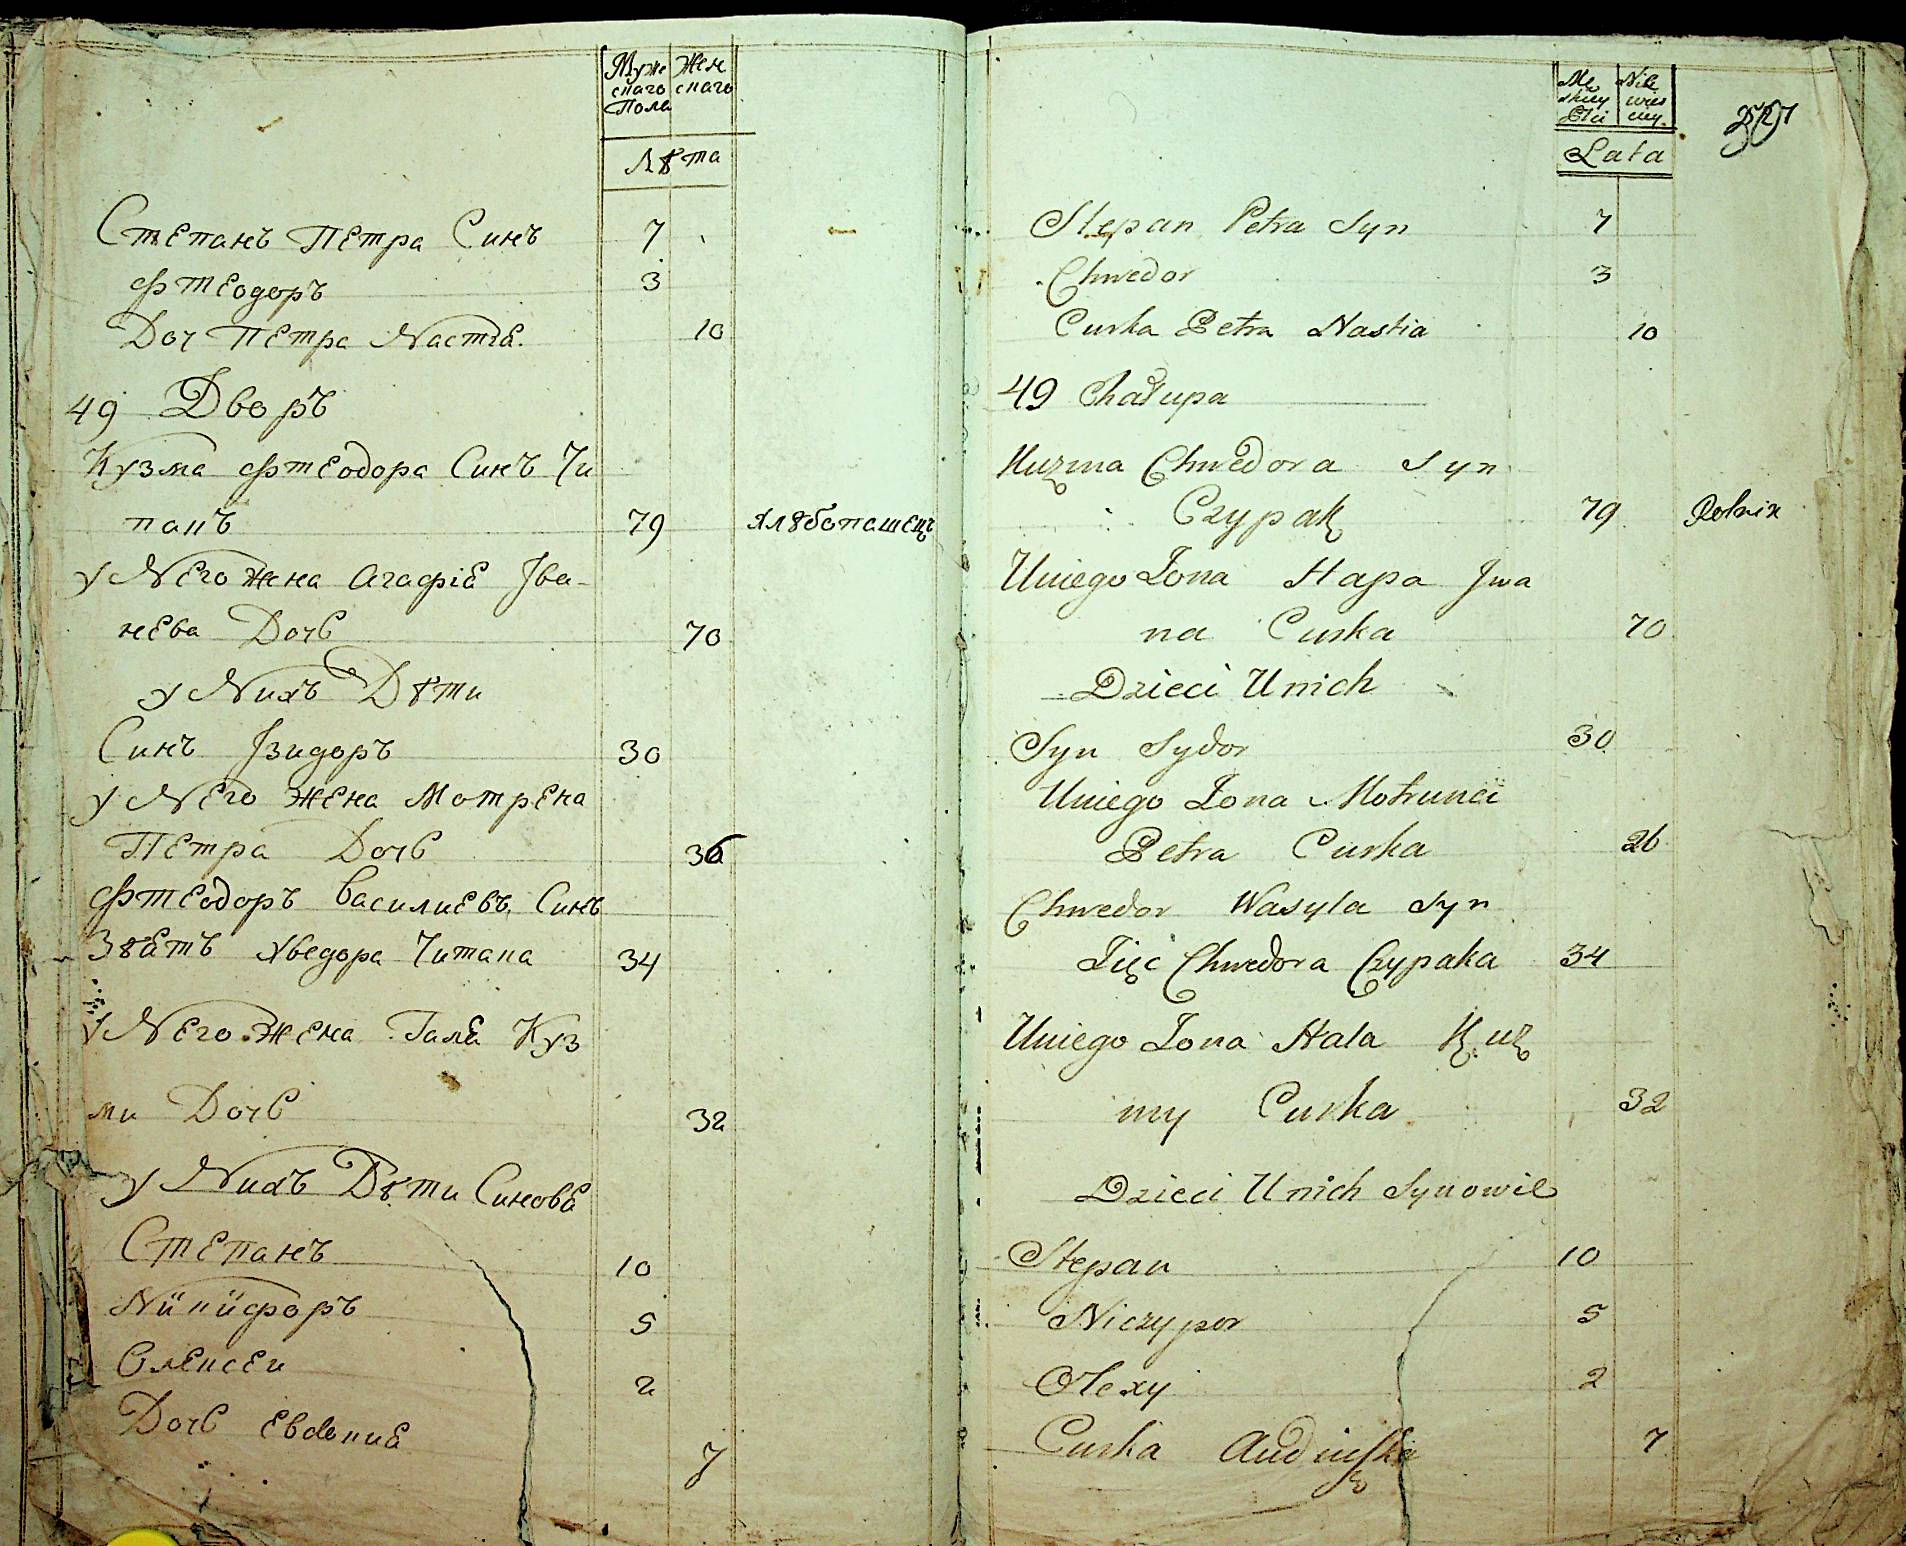 Муже
снаго
Пола
Жен
снаго
Лѣта
Степанъ Петра Синъ 7
Фтеодоръ 3
Доч Петра Nастіѣ. 10
49 Дворъ
Кузма Фтеодора Синъ Чи
папъ 79 Хлѣбопашецъ
у Nего жена Агафіѣ Іва-
нева Дочь 70
у Nихъ Дѣти
Синъ Ізидоръ 30
у Nего жена Мотрена
Петра Дочь 36
Фтеодоръ Василиевъ Синъ
Зѣѣтъ Хведора Чипапа 34
у Nего жена Галѣ Куз
ми Дочь 32
у Nихъ Дѣти Синовѣ
Степанъ 10
Nикифоръ 5
Олексеи 2
Дочь Евдокиѣ 7
Mę
skiey
Płci
Nie
wies
ciey.
Lata
Stepan Petra Syn 7
Chwedor 3
Curka Petra Nastia 10
49 Chałupa
Kuzma Chwedora Syn
Czypak 79 Rolnik
Uniego Zona Hapa Jwa
na Curka 70
Dzieci Unich
Syn Sydor 30
Uniego Zona Motrunci
Petra Curka 26
Chwedor Wasyla Syn
Zięc Chwedora Czypaka 34
Uniego Zona Hala Kuz
my Curka 32
Dzieci Unich Synowie
Stepan 10
Niczypor 5
Olexy 2
Curka 7